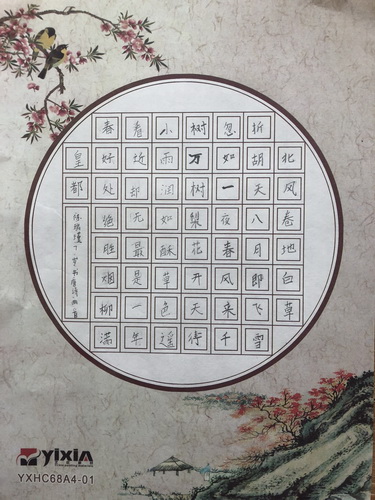 北风卷地白草
折胡天八月即飞雪
忽如一夜春风来千
树万树梨花开天街
小雨润如酥草色遥
看近却无最是一年
春好处绝胜烟柳满
皇都
书唐诗两首
yixin
YXHC68A4-01